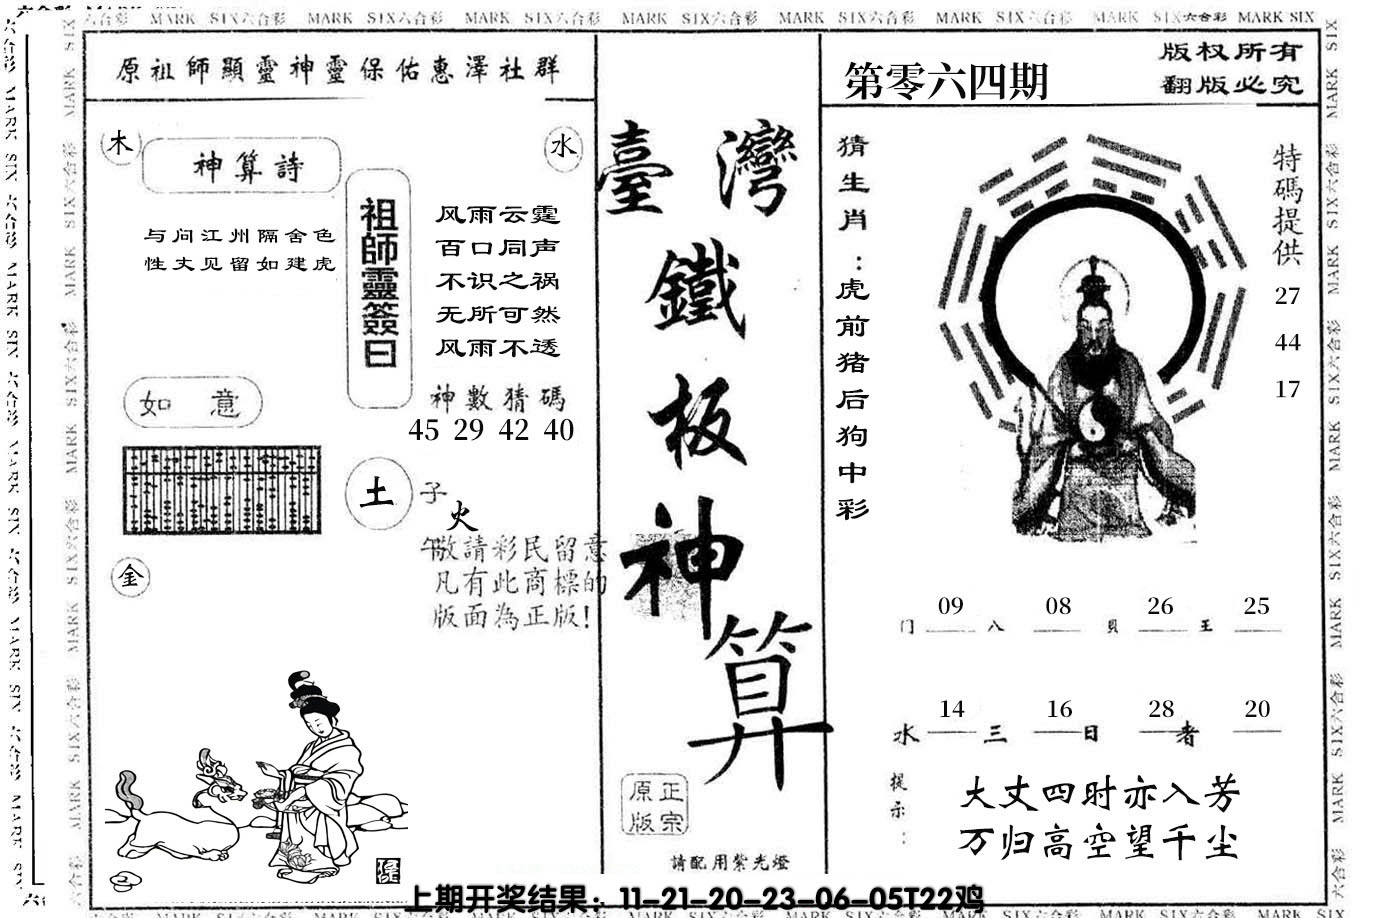 六合彩 MARK SIX六合彩 MARK SIX六合彩 MARK SIX六合彩 MARK SIX六合彩 MARK SIX六合彩 MARK SIX六合彩 MARK SIX六合彩 MARK SIX
原祖師顯靈神靈保佑惠澤社群
木
水
神算詩
与问江州隔舍色
性丈见留如建虎
祖師靈簽曰
风雨云霆
百口同声
不识之祸
无所可然
风雨不透
神數猜碼
45 29 42 40
如 意
土
子
火
午
敬請彩民留意
凡有此商標的
版面為正版!
金
臺灣
鐵
板
神
算
原正
版宗
請配用紫光燈
第零六四期
版权所有
翻版必究
猜生肖:虎前猪后狗中彩
特碼提供
27
44
17
门 09 八 08 贝 26 王 25
水 14 三 16 日 28 者 20
提示:
大丈四时亦入芳
万归高空望千尘
上期开奖结果：11-21-20-23-06-05T22鸡